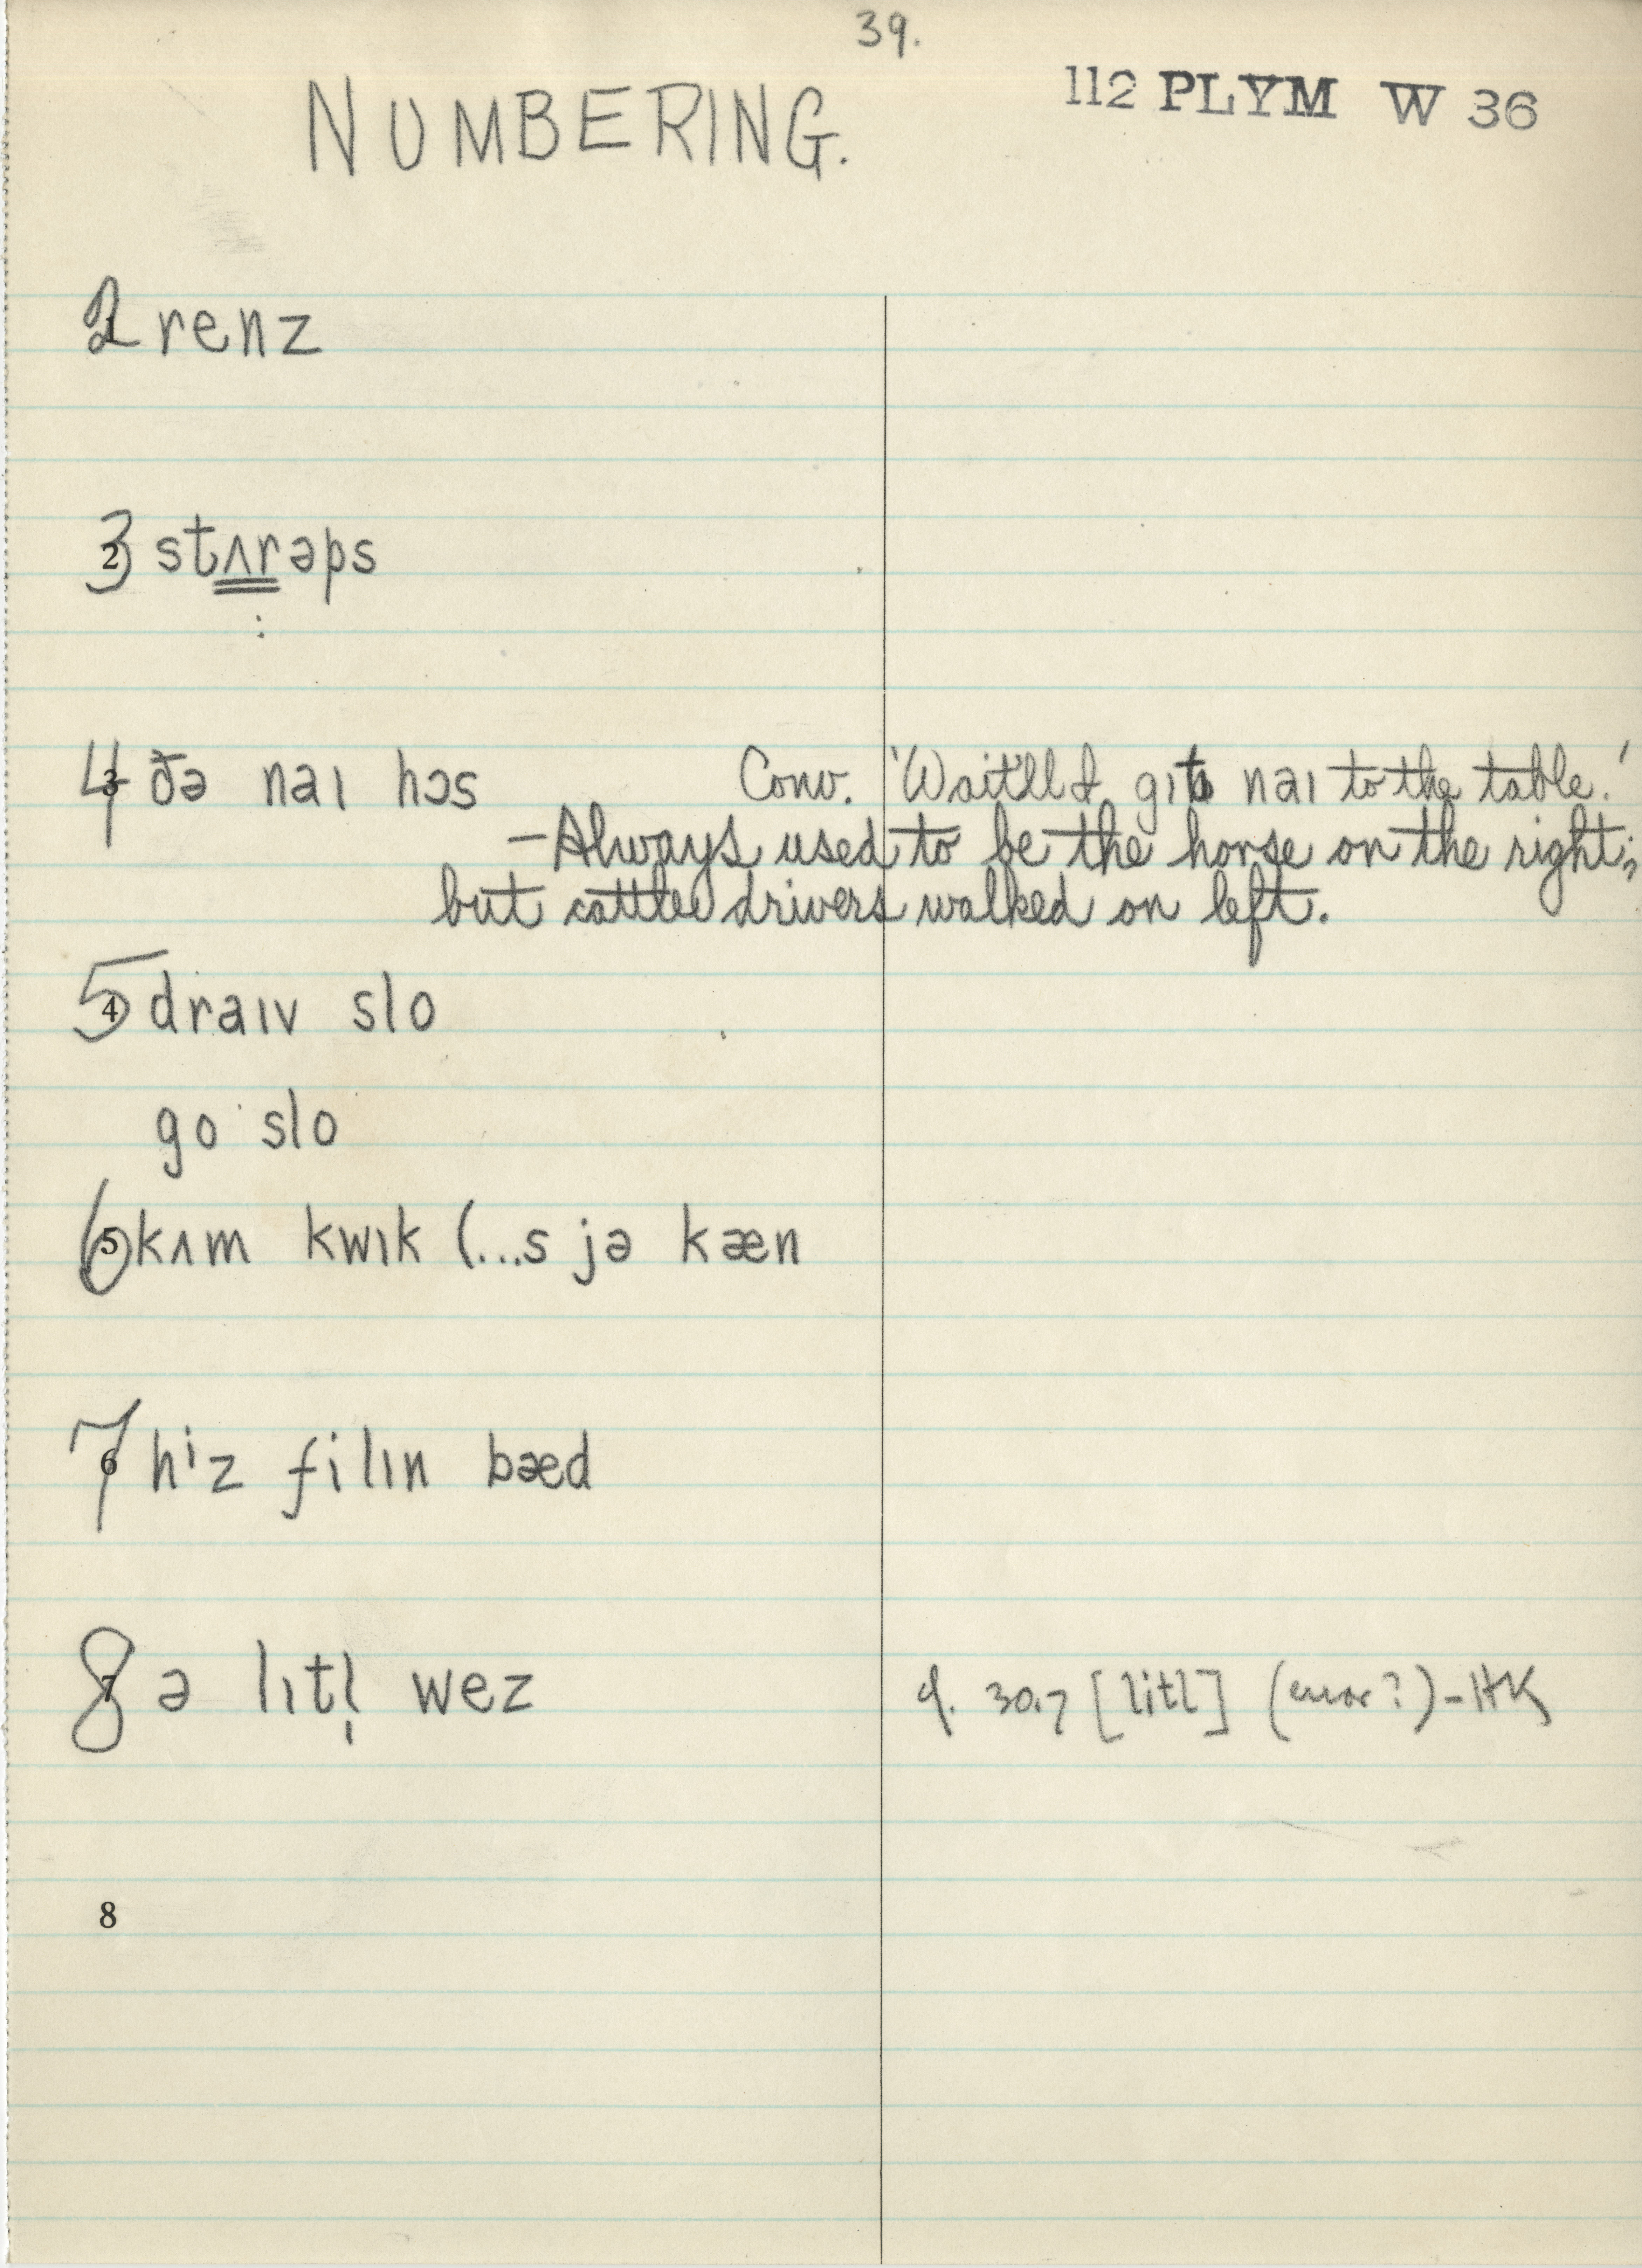 39.
NUMBERING.
112 PLYM W 36
2 1 renz
3 2 stʌrəps
:
4 3 ðə naɪ hɔs Conv. 'Wait'll I gɪt naɪ to the table.'
—Always used to be the horse on the right;
but cattle drivers walked on left.
5 4 draɪv slo
go slo
6 5 kʌm kwɪk (...s jə kæn
7 6 hⁱz filɪn bæd
8 7 ə lɪtl̩ wez cf. 30.7 [litl] (error?) - HK
8